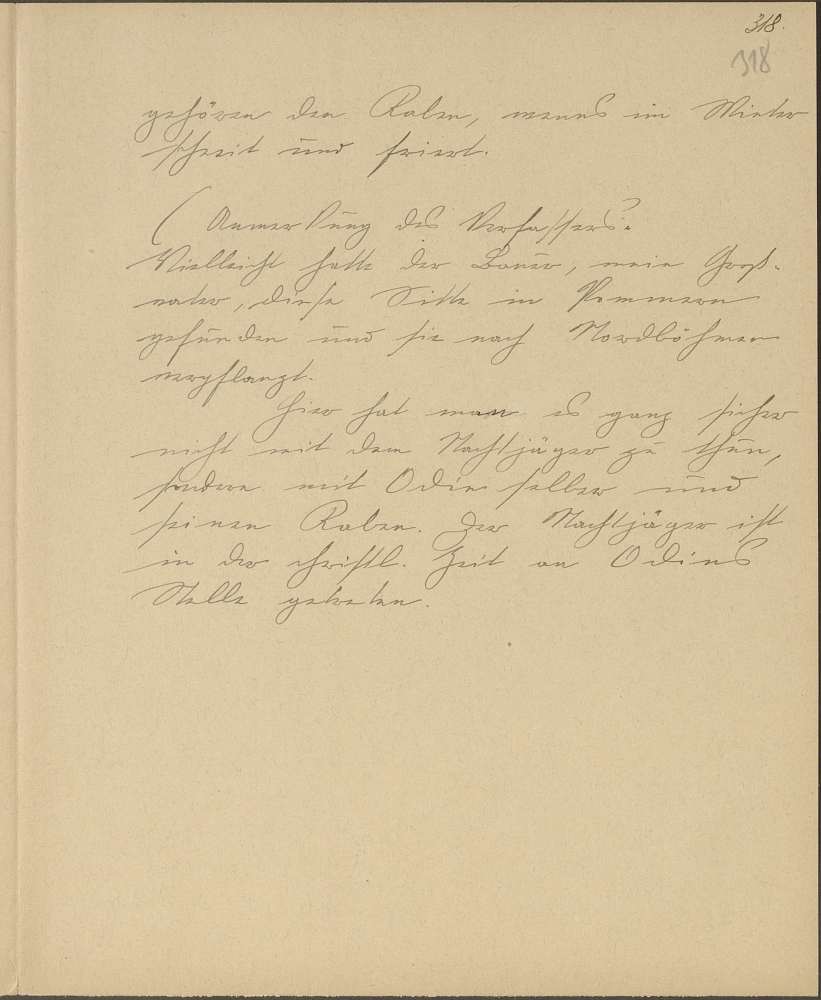 318.
318
gehören den Raben, wenns im Winter
schneit und friert.
(Anmerkung des Verfassers:
Vielleicht hatte der Bauer, mein Groß-
vater, diese Sitte in Pommern
gefunden und sie nach Nordböhmen
verpflanzt.
Hier hat man es ganz sicher
nicht mit dem Nachtjäger zu thun,
sondern mit Odin selber und
seinen Raben. Der Nachtjäger ist
in der christl. Zeit an Odins
Stelle getreten.